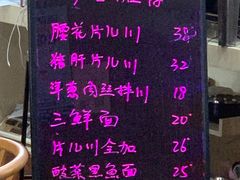 腰花片儿川 38
猪肝片儿川 32
洋葱肉丝拌川 18
三鲜面 20
片儿川全加 26
酸菜黑鱼面 25